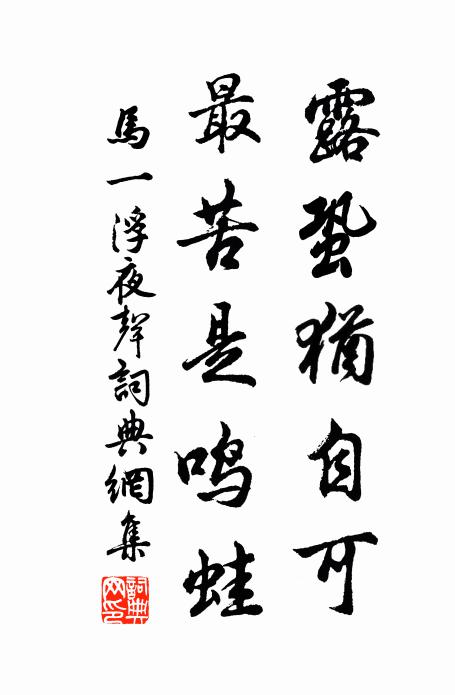 露蛩猶自可
最苦是鳴蛙
馬一浮夜聲詞典網集
詞典
网印